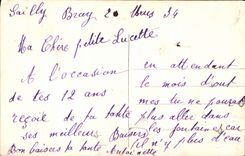 Sailly Bray 2 Mars 34
Ma Chère petite Lucette
A l'occasion
de tes 12 ans
reçoit de ta tante
ses meilleurs Baisers
Bon baisers ta tante Antoinette
en attendant
le mois d'out
mes tu ne pourras
plus aller dans
les fontaines car
il n'y plus d'eau